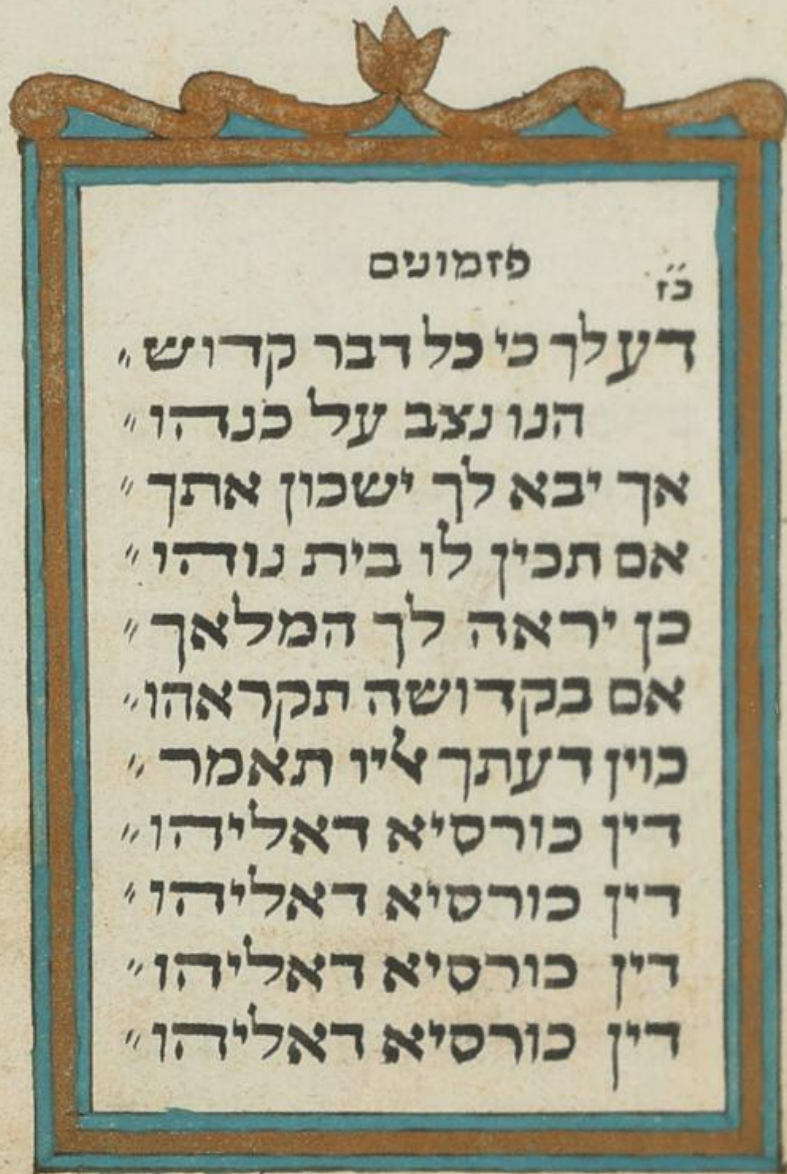 פזמונים
כ״ז
דע לך כי כל דבר קדוש״
הנו נצב על כנהו״
אך יבא לך ישכון אתך״
אם תכין לו בית נוהו״
כן יראה לך המלאך״
אם בקדושה תקראהו״
כוין דעתך ﭏיו תאמר״
דין כורסיא דאליהו״
דין כורסיא דאליהו״
דין כורסיא דאליהו״
דין כורסיא דאליהו״